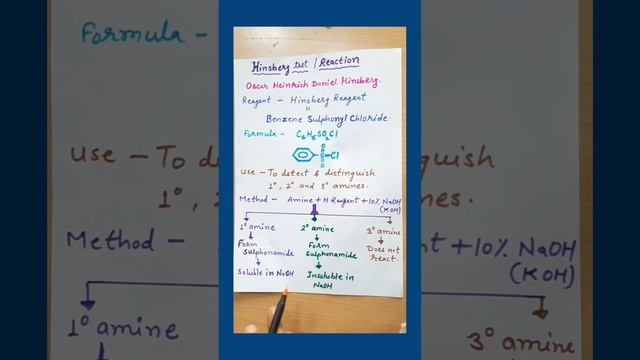 Hinsberg test / Reaction
Oscar Heinrich Daniel Hinsberg.
Reagent - Hinsberg Reagent
=
Benzene Sulphonyl Chloride.
Formula - C6H5SO2Cl
O
S - Cl
O
Use - To detect & distinguish
1°, 2° and 3° amines.
Method - Amine + H.Reagent + 10% NaOH
(KOH)
1° amine 2° amine 3° amine
Form Sulphonamide Form Sulphonamide Does not react.
Soluble in NaOH Insoluble in NaOH
Formula -
Use - To detect
1°,
Method -
1° amine
nguish
nes.
t + 10% NaOH
(KOH)
3° amine